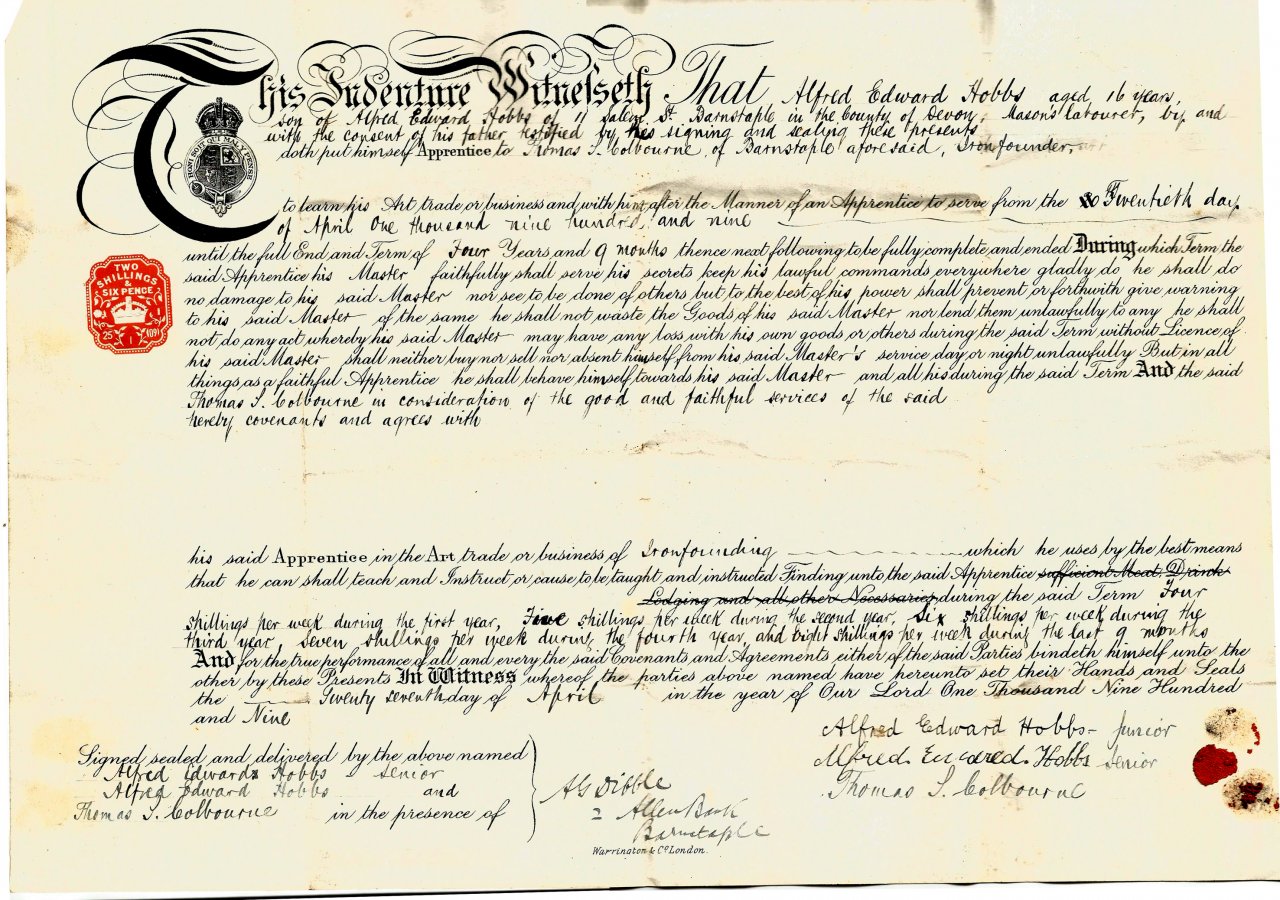 This Indenture Witnesseth That Alfred Edward Hobbs aged 16 years,
son of Alfred Edward Hobbs of 11 Salem St. Barnstaple in the County of Devon, Masons labourer, by and
with the consent of his father testified by his signing and sealing these presents
doth put himself Apprentice to Thomas S. Colbourne, of Barnstaple aforesaid, Ironfounder,
HONI SOIT QUI MAL Y PENSE
to learn his Art trade or business and with him after the Manner of an Apprentice to serve from the Twentieth day
of April One thousand nine hundred and nine
until the full End and Term of Four Years and 9 months thence next following to be fully complete and ended During which Term the
said Apprentice his Master faithfully shall serve his secrets keep his lawful commands everywhere gladly do he shall do
no damage to his said Master nor see to be done of others but to the best of his power shall prevent or forthwith give warning
to his said Master of the same he shall not waste the Goods of his said Master nor lend them unlawfully to any he shall
not do any act whereby his said Master may have any loss with his own goods or others during the said Term without Licence of
his said Master shall neither buy nor sell nor absent himself from his said Master's service day or night unlawfully But in all
things as a faithful Apprentice he shall behave himself towards his said Master and all his during the said Term And the said
Thomas S. Colbourne in consideration of the good and faithful services of the said
hereby covenants and agrees with
TWO
SHILLINGS
&
SIX PENCE
25 1
his said Apprentice in the Art trade or business of Ironfounding which he uses by the best means
that he can shall teach and Instruct or cause to be taught and instructed Finding unto the said Apprentice sufficient Meat Drink
Lodging and all other Necessaries during the said Term Four
shillings per week during the first year, Five shillings per week during the second year, Six shillings per week during the
third year, seven shillings per week during the fourth year, and eight shillings per week during the last 9 months
And for the true performance of all and every the said Covenants and Agreements either of the said Parties bindeth himself unto the
other by these Presents In Witness whereof the parties above named have hereunto set their Hands and Seals
the Twenty seventh day of April in the year of Our Lord One Thousand Nine Hundred
and Nine
Alfred Edward Hobbs - junior
Alfred Edward Hobbs senior
Thomas S. Colbourne
Signed sealed and delivered by the above named
Alfred Edward Hobbs senior
Alfred Edward Hobbs and
Thomas S. Colbourne in the presence of
A G Dibble
2 Allen Bank
Barnstaple
Warrington & Co London.